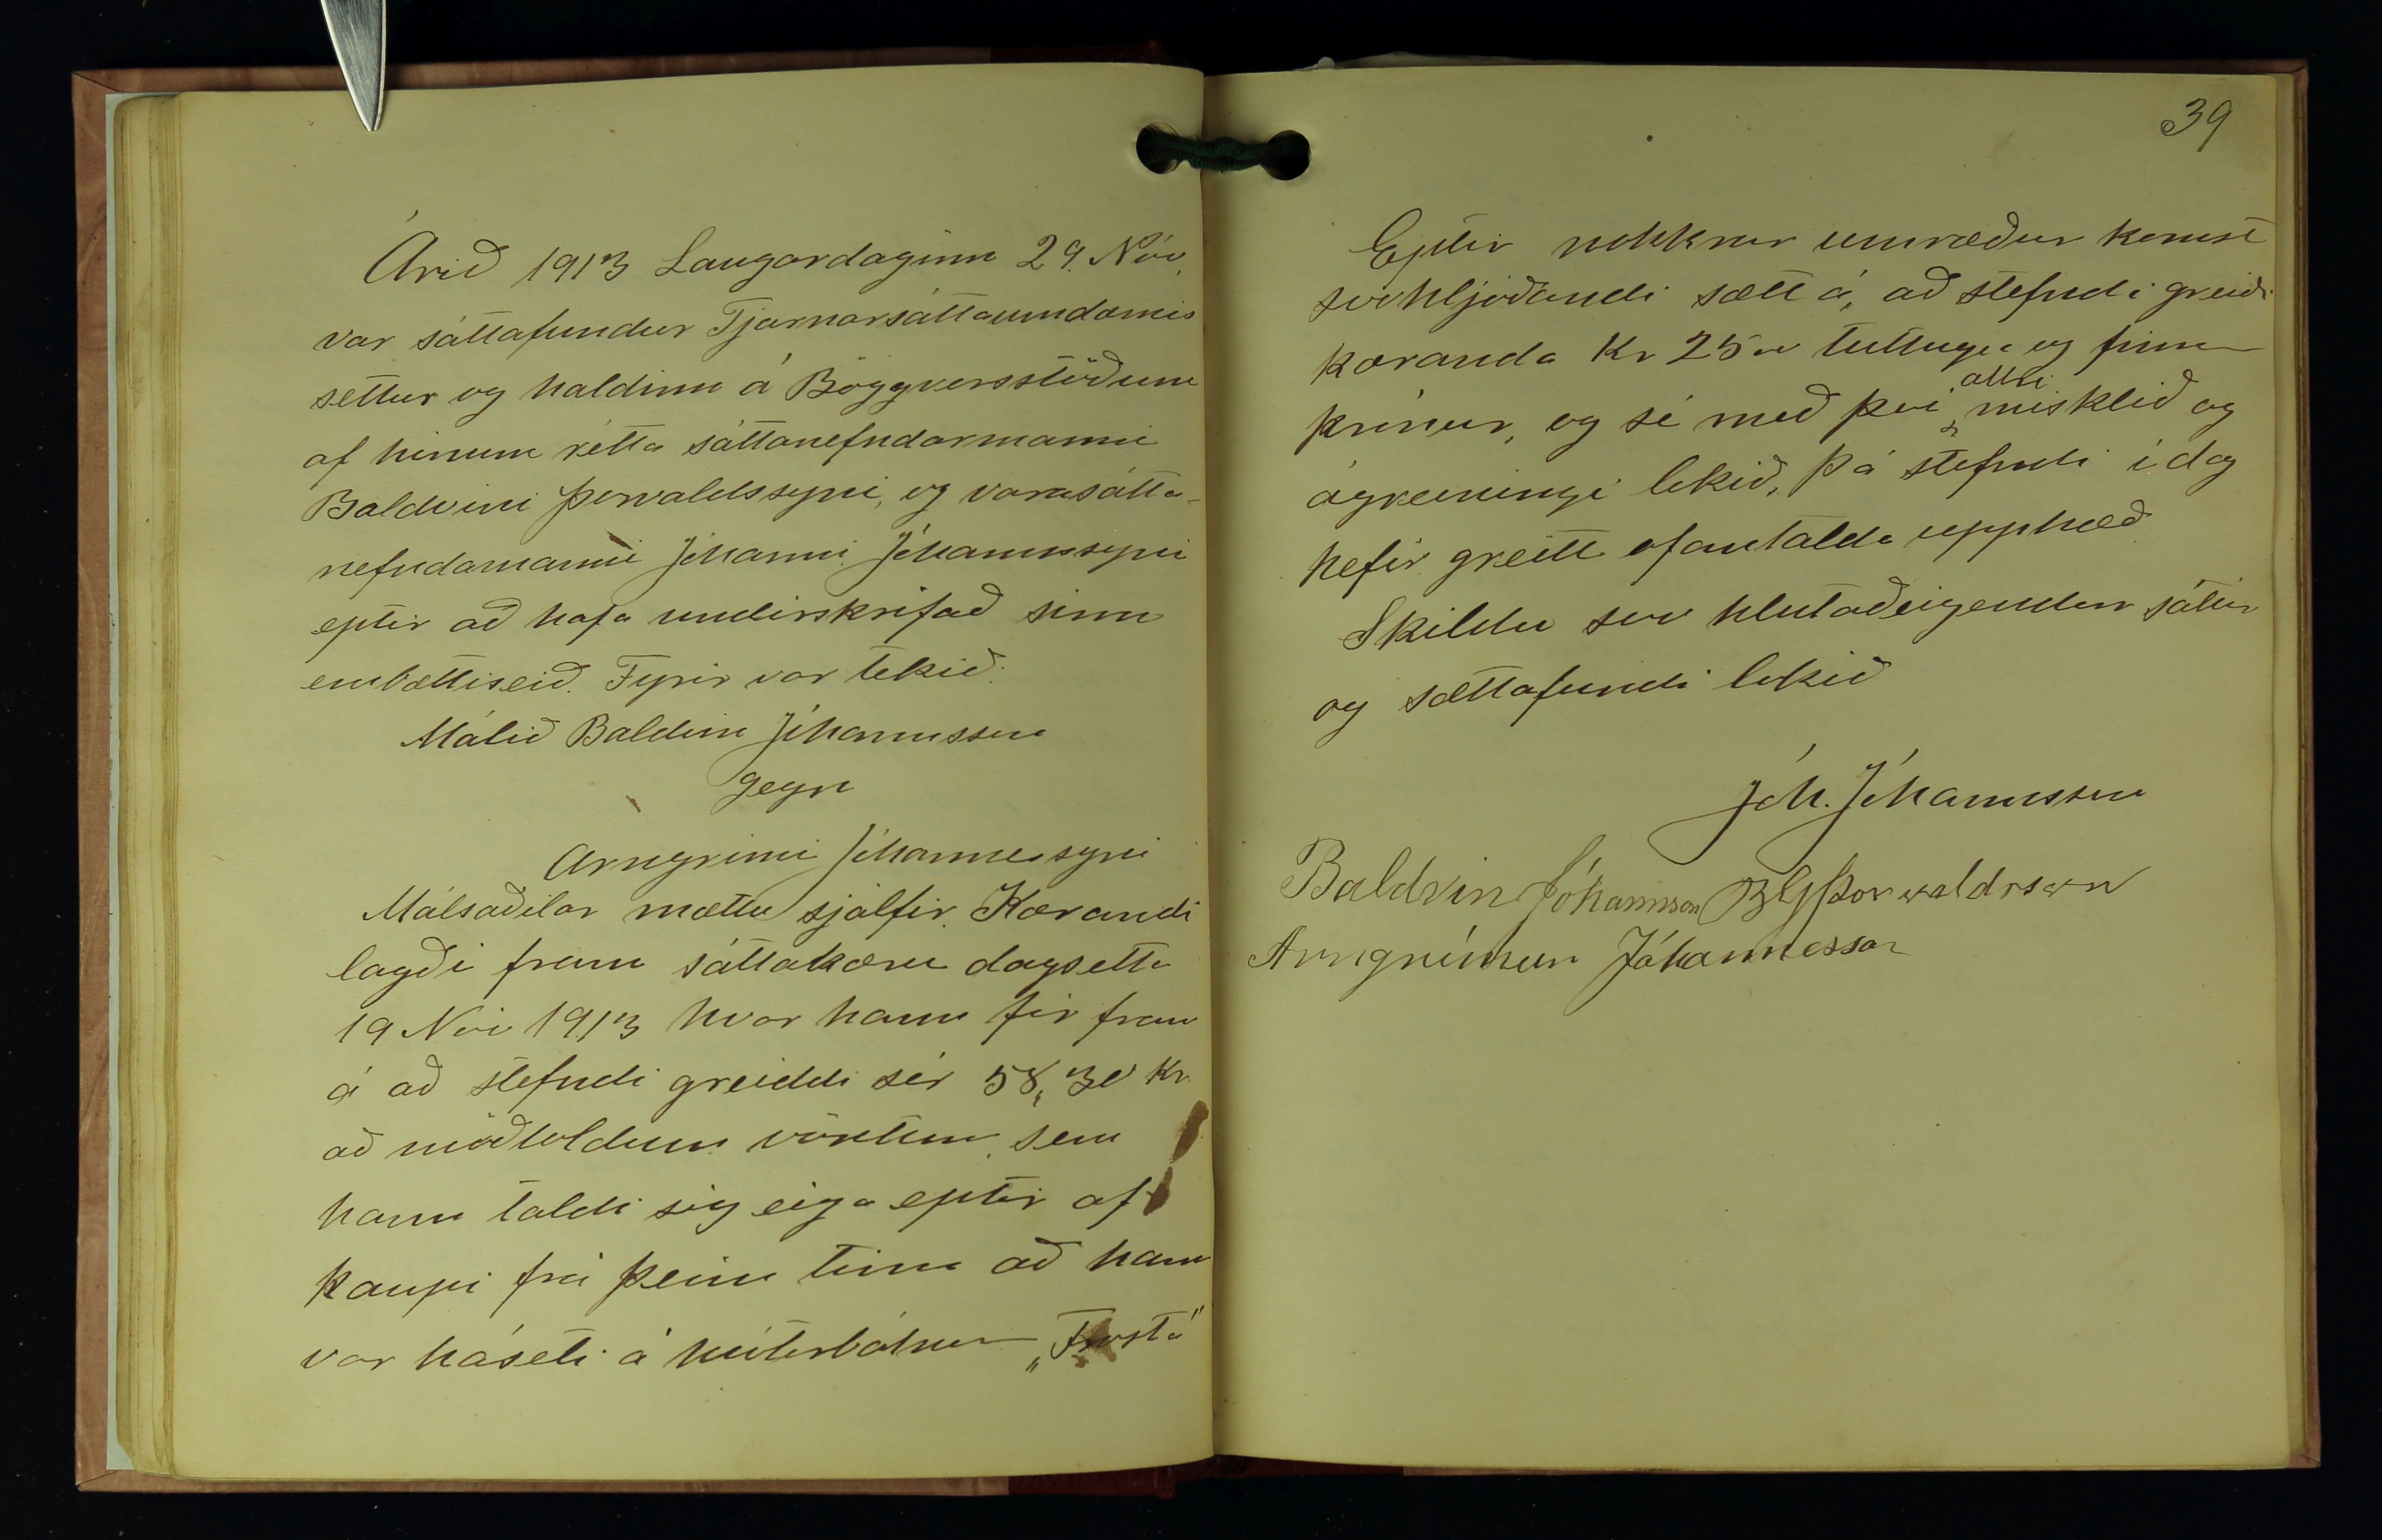 Árið 1913 Laugardaginn 29. Nóv.
var sáttafundur Tjarnarsáttaumdæmis
settur og haldinn á Böggversstöðum
af hinum rétta sáttanefndarmanni
Baldvini Þorvaldssyni, og varasátta-
nefndamanni Jóhanni Jóhannssyni
eptir að hafa undirskrifað sinn
embættiseið. Fyrir var tekið:
Málið Baldvin Jóhannsson
gegn
Arngrími Jóhannessyni
Málsaðilar mættu sjálfir. Kærandi
lagði fram sáttakæru dagsetta
19 Nóv 1913 hvar hann fer fram
á að stefndi greiddi sér 58,30 Kr
að meðtoldum vöxtum, sem
hann taldi sig eiga eptir af
kaupi frá þeim tíma að hann
var háseti á mótorbátnum „Frosta"
39
Eptir nokkrar umræður komst
svohljóðandi sætt á, að stefndi greiði
kæranda Kr 25 tuttugu og fimm
krónur, og sé með því allri misklíð og
ágreiningi lokið, þá stefndi í dag
hefir greitt ofantalda upphæð
Skildu svo hlutaðeigendur sáttir
og sættafundi lokið
Jóh. Jóhannsson
Baldvin Jóhannson BG Þorvaldsson
Arngrímur Jóhannesson